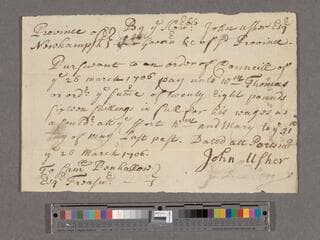 Province of By yͤ Honᵇˡᵉ John Usher Esqʳ
Newhampshʳ Lᵗ Govʳ &c of sᵈ Province
Pursuant to an order of Councill of
yͤ 26 march 1706 pay unto Wᵐ Thomas
or ordʳ yͤ sume of twenty Eight pounds
Sixteen shillings in full for his wages as
a Souldʳ att yͤ Fort Wᵐ and Mary to yͤ 31ˢᵗ
day of may Last past. Dated att Portsmᵒ
yͤ 28 March 1706.
John Usher
To Samˡ Penhallow
Esqʳ Treasʳ